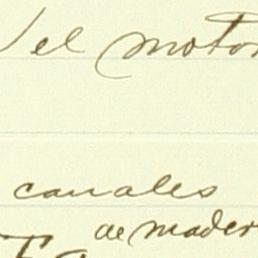 el moto
canales
de mader